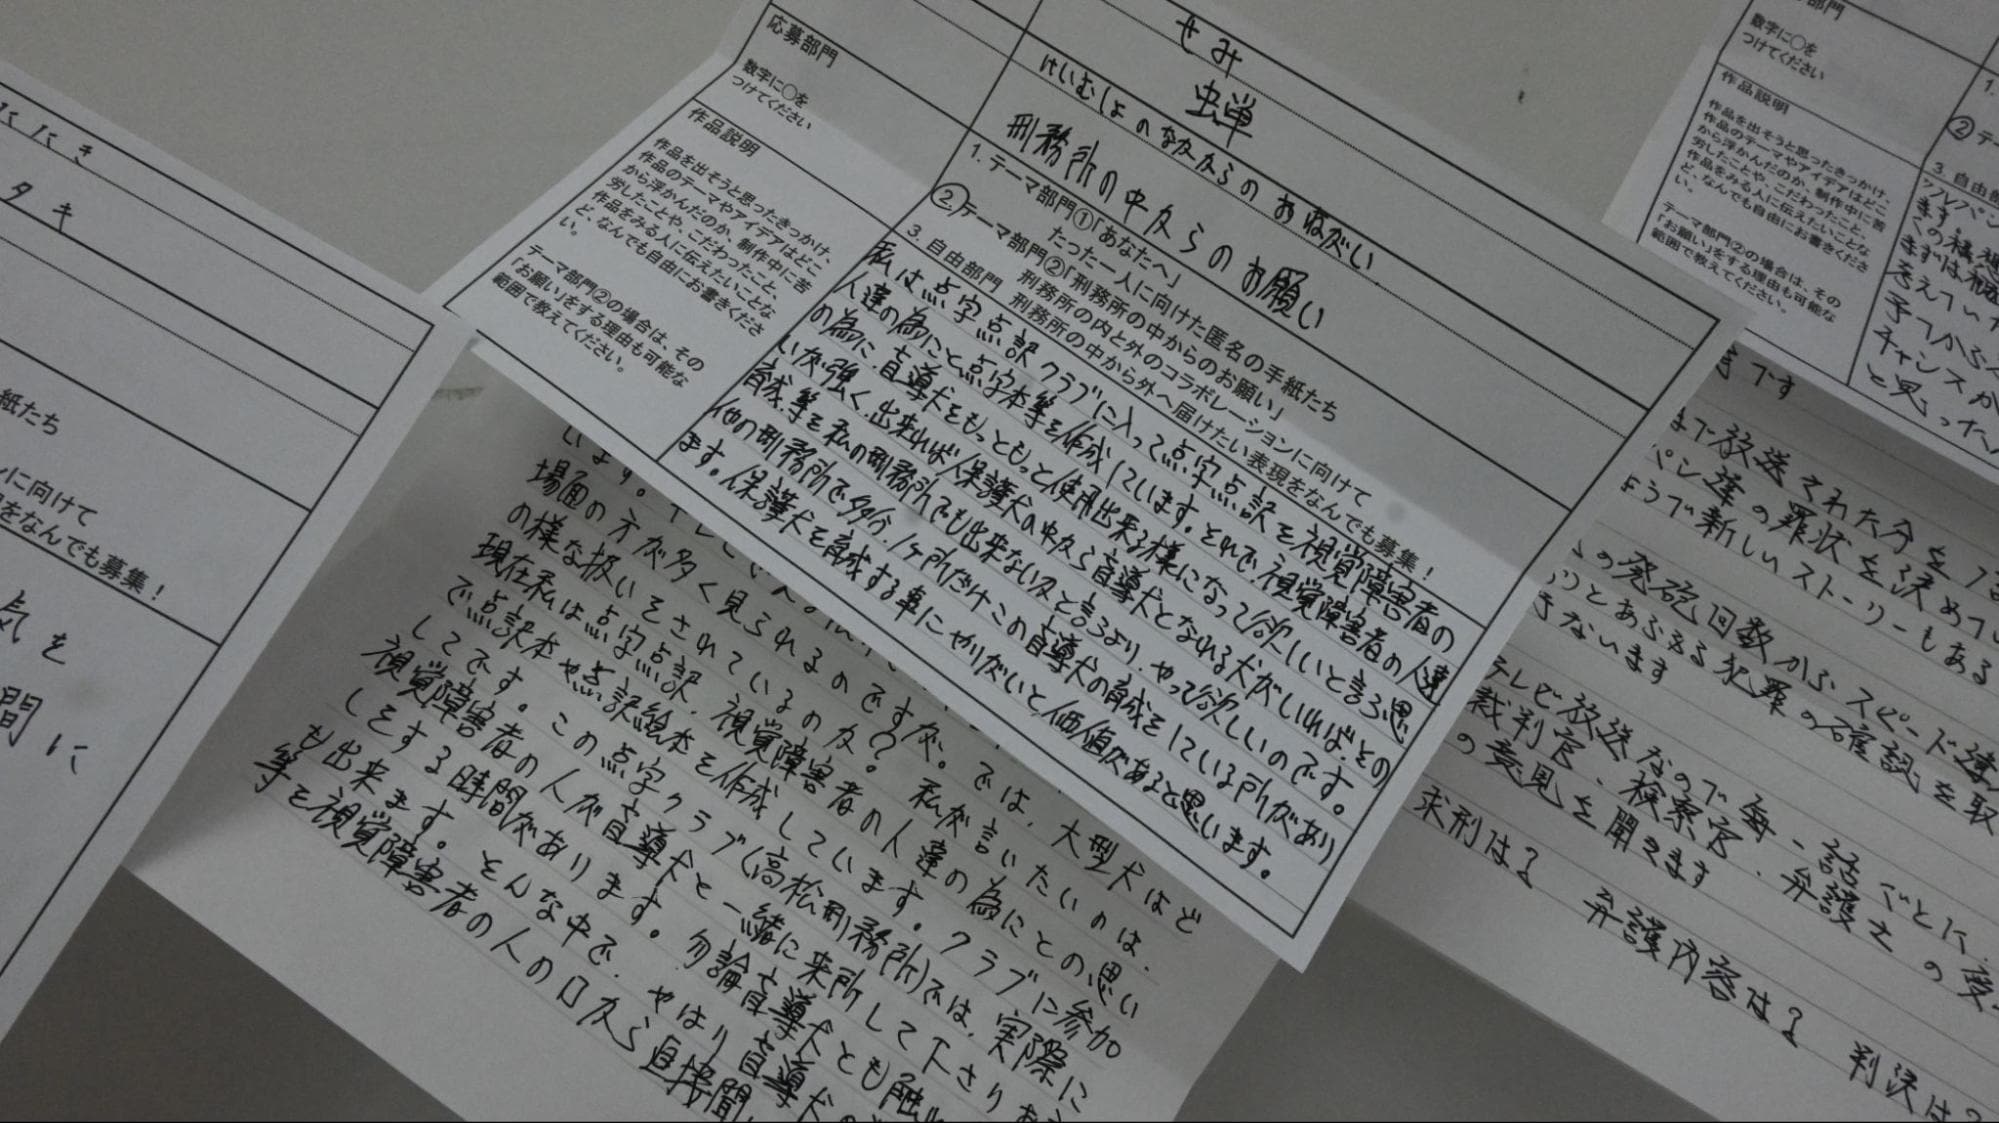 にたき
タキ
紙たち
に向けて
をなんでも募集！
気を
間に
せみ
蝉
けいむしょのなかからのおねがい
刑務所の中からのお願い
応募部門
数字に○を
つけてください
1. テーマ部門①「あなたへ」
たった一人に向けた匿名の手紙たち
②テーマ部門②「刑務所の中からのお願い」
刑務所の内と外のコラボレーションに向けて
3. 自由部門 刑務所の中から外へ届けたい表現をなんでも募集！
作品説明
作品を出そうと思ったきっかけ、
作品のテーマやアイデアはどこ
から浮かんだのか、制作中に苦
労したことや、こだわったこと、
作品をみる人に伝えたいことな
ど、なんでも自由にお書きくださ
い。
テーマ部門②の場合は、その
「お願い」をする理由も可能な
範囲で教えてください。
私は点字点訳クラブに入って点字点訳を視覚障害者の
人達の為にと点字本等を作成しています。それで、視覚障害者の人達
の為に、盲導犬をもっともっと使用出来る様になって欲しいと言う思
いが強く、出来れば保護犬の中から盲導犬となれる犬がいれば、その
育成等を私の刑務所でも出来ないかと言うより、やって欲しいのです。
他の刑務所で多分、1ヶ所だけこの盲導犬の育成をしている所があり
ます。保護犬を育成する事にやりがいと価値があると思います。
います。テレビで
場面の方が多く見られるのですが。では、大型犬はど
の様な扱いをされているのか？ 私が言いたいのは、
現在私は点字点訳、視覚障害者の人達の為にとの思い
で点訳本や点訳絵本を作成しています。クラブに参加
してです。この点字クラブ(高松刑務所)では、実際に
視覚障害者の人が盲導犬と一緒に来所して下さりお
しをする時間があります。勿論盲導犬とも触れ
も出来ます。そんな中で、やはり盲導犬の
等を視覚障害者の人の口から直接聞
部門
数字に○を
つけてください
1.
②テー
3. 自由部
作品説明
作品を出そうと思ったきっかけ、
作品のテーマやアイデアはどこ
から浮かんだのか、制作中に苦
労したことや、こだわったこと、
作品をみる人に伝えたいことな
ど、なんでも自由にお書きくださ
い。
テーマ部門②の場合は、その
「お願い」をする理由も可能な
範囲で教えてください。
ルパン
ます。
考えていた
チャンスが
と思った
です
まで放送された分を
パン達の罪状を決めてい
ようで新しいストーリーもある
の発砲回数から、スピード違
とあらゆる犯罪の確認を取
きないます
テレビ放送なので毎一話ごとに、
裁判官、検察官、弁護士の
の意見を聞きます
求刑は？ 弁護内容は？ 判決は？